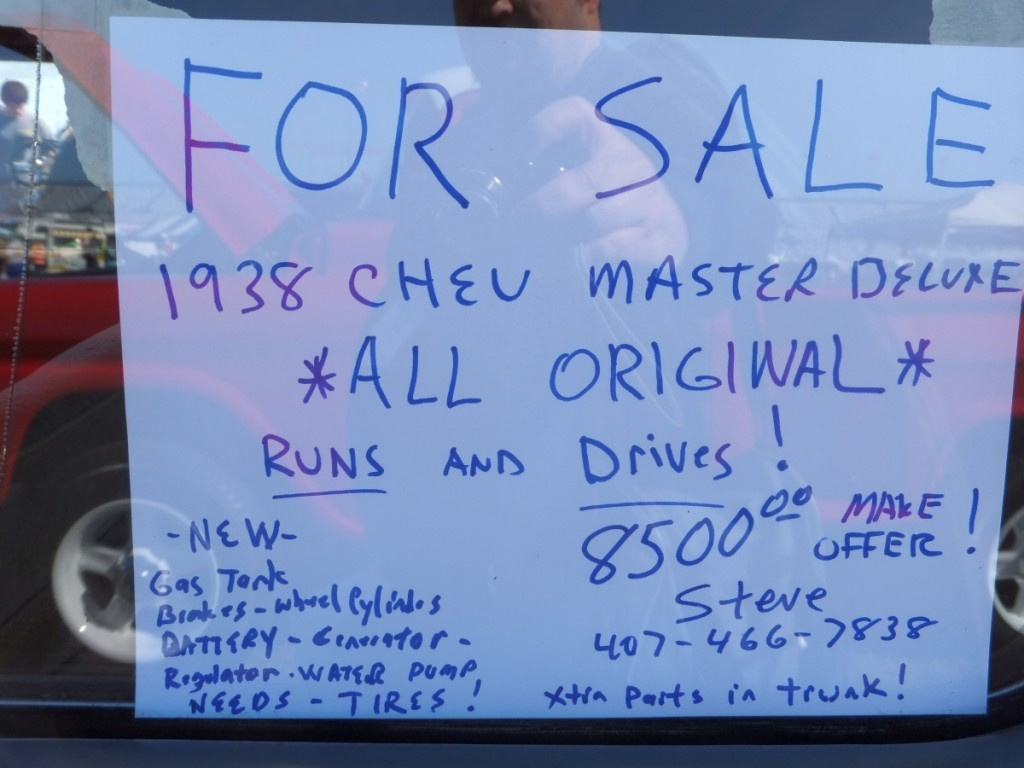 FOR SALE
1938 CHEV MASTER DELUXE
*ALL ORIGINAL*
RUNS AND Drives!
-NEW-
Gas Tank
Brakes-wheel Cylindes
BATTERY - Generator-
Regulator. WATER PUMP
NEEDS - TIRES!
8500⁰⁰ MAKE OFFER!
Steve
407-466-7838
Xtra Parts in trunk!